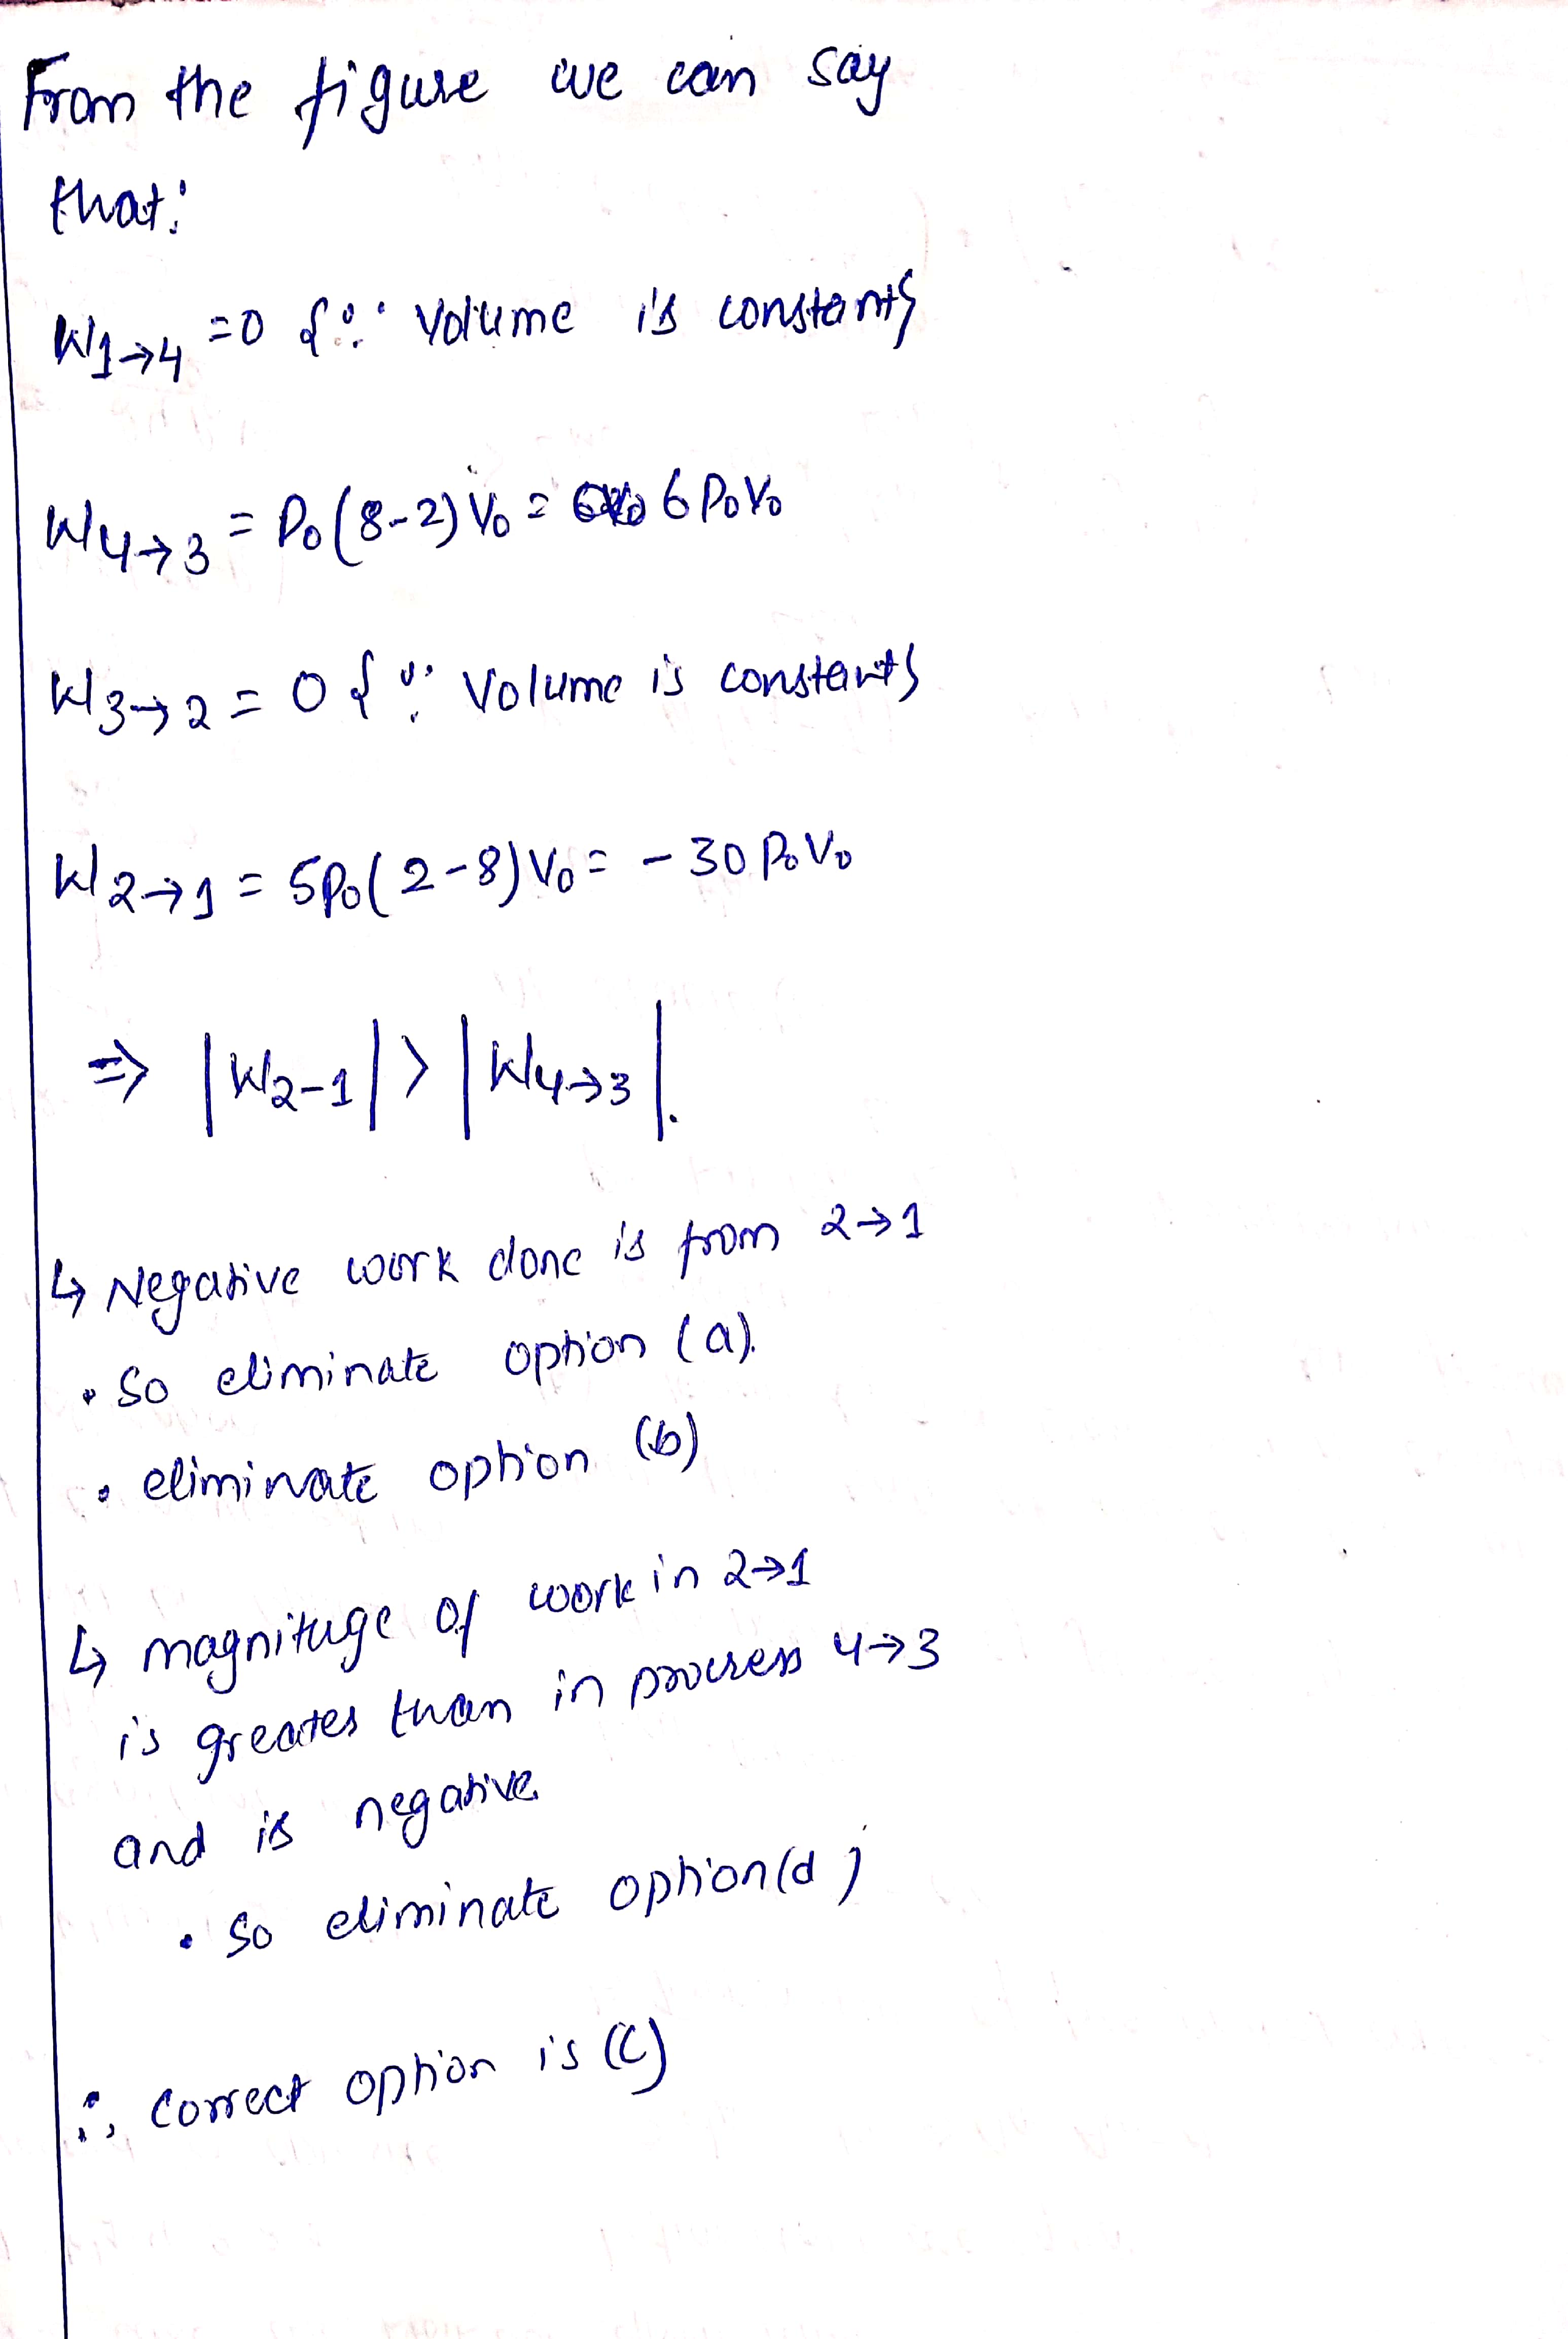 From the figure we can say
that:
W1→4 = 0 {∵ Volume is constant}
W4→3 = P0(8-2)V0 = 6P0V0
W3→2 = 0 {∵ Volume is constant}
W2→1 = 5P0(2-8)V0 = -30P0V0
⇒ |W2-1| > |W4→3|.
↳ Negative work done is from 2→1
• So eliminate option (a).
• eliminate option (b)
↳ magnituge of work in 2→1
is greater than in process 4→3
and is negative.
• So eliminate option (d)
∴ correct option is (C)